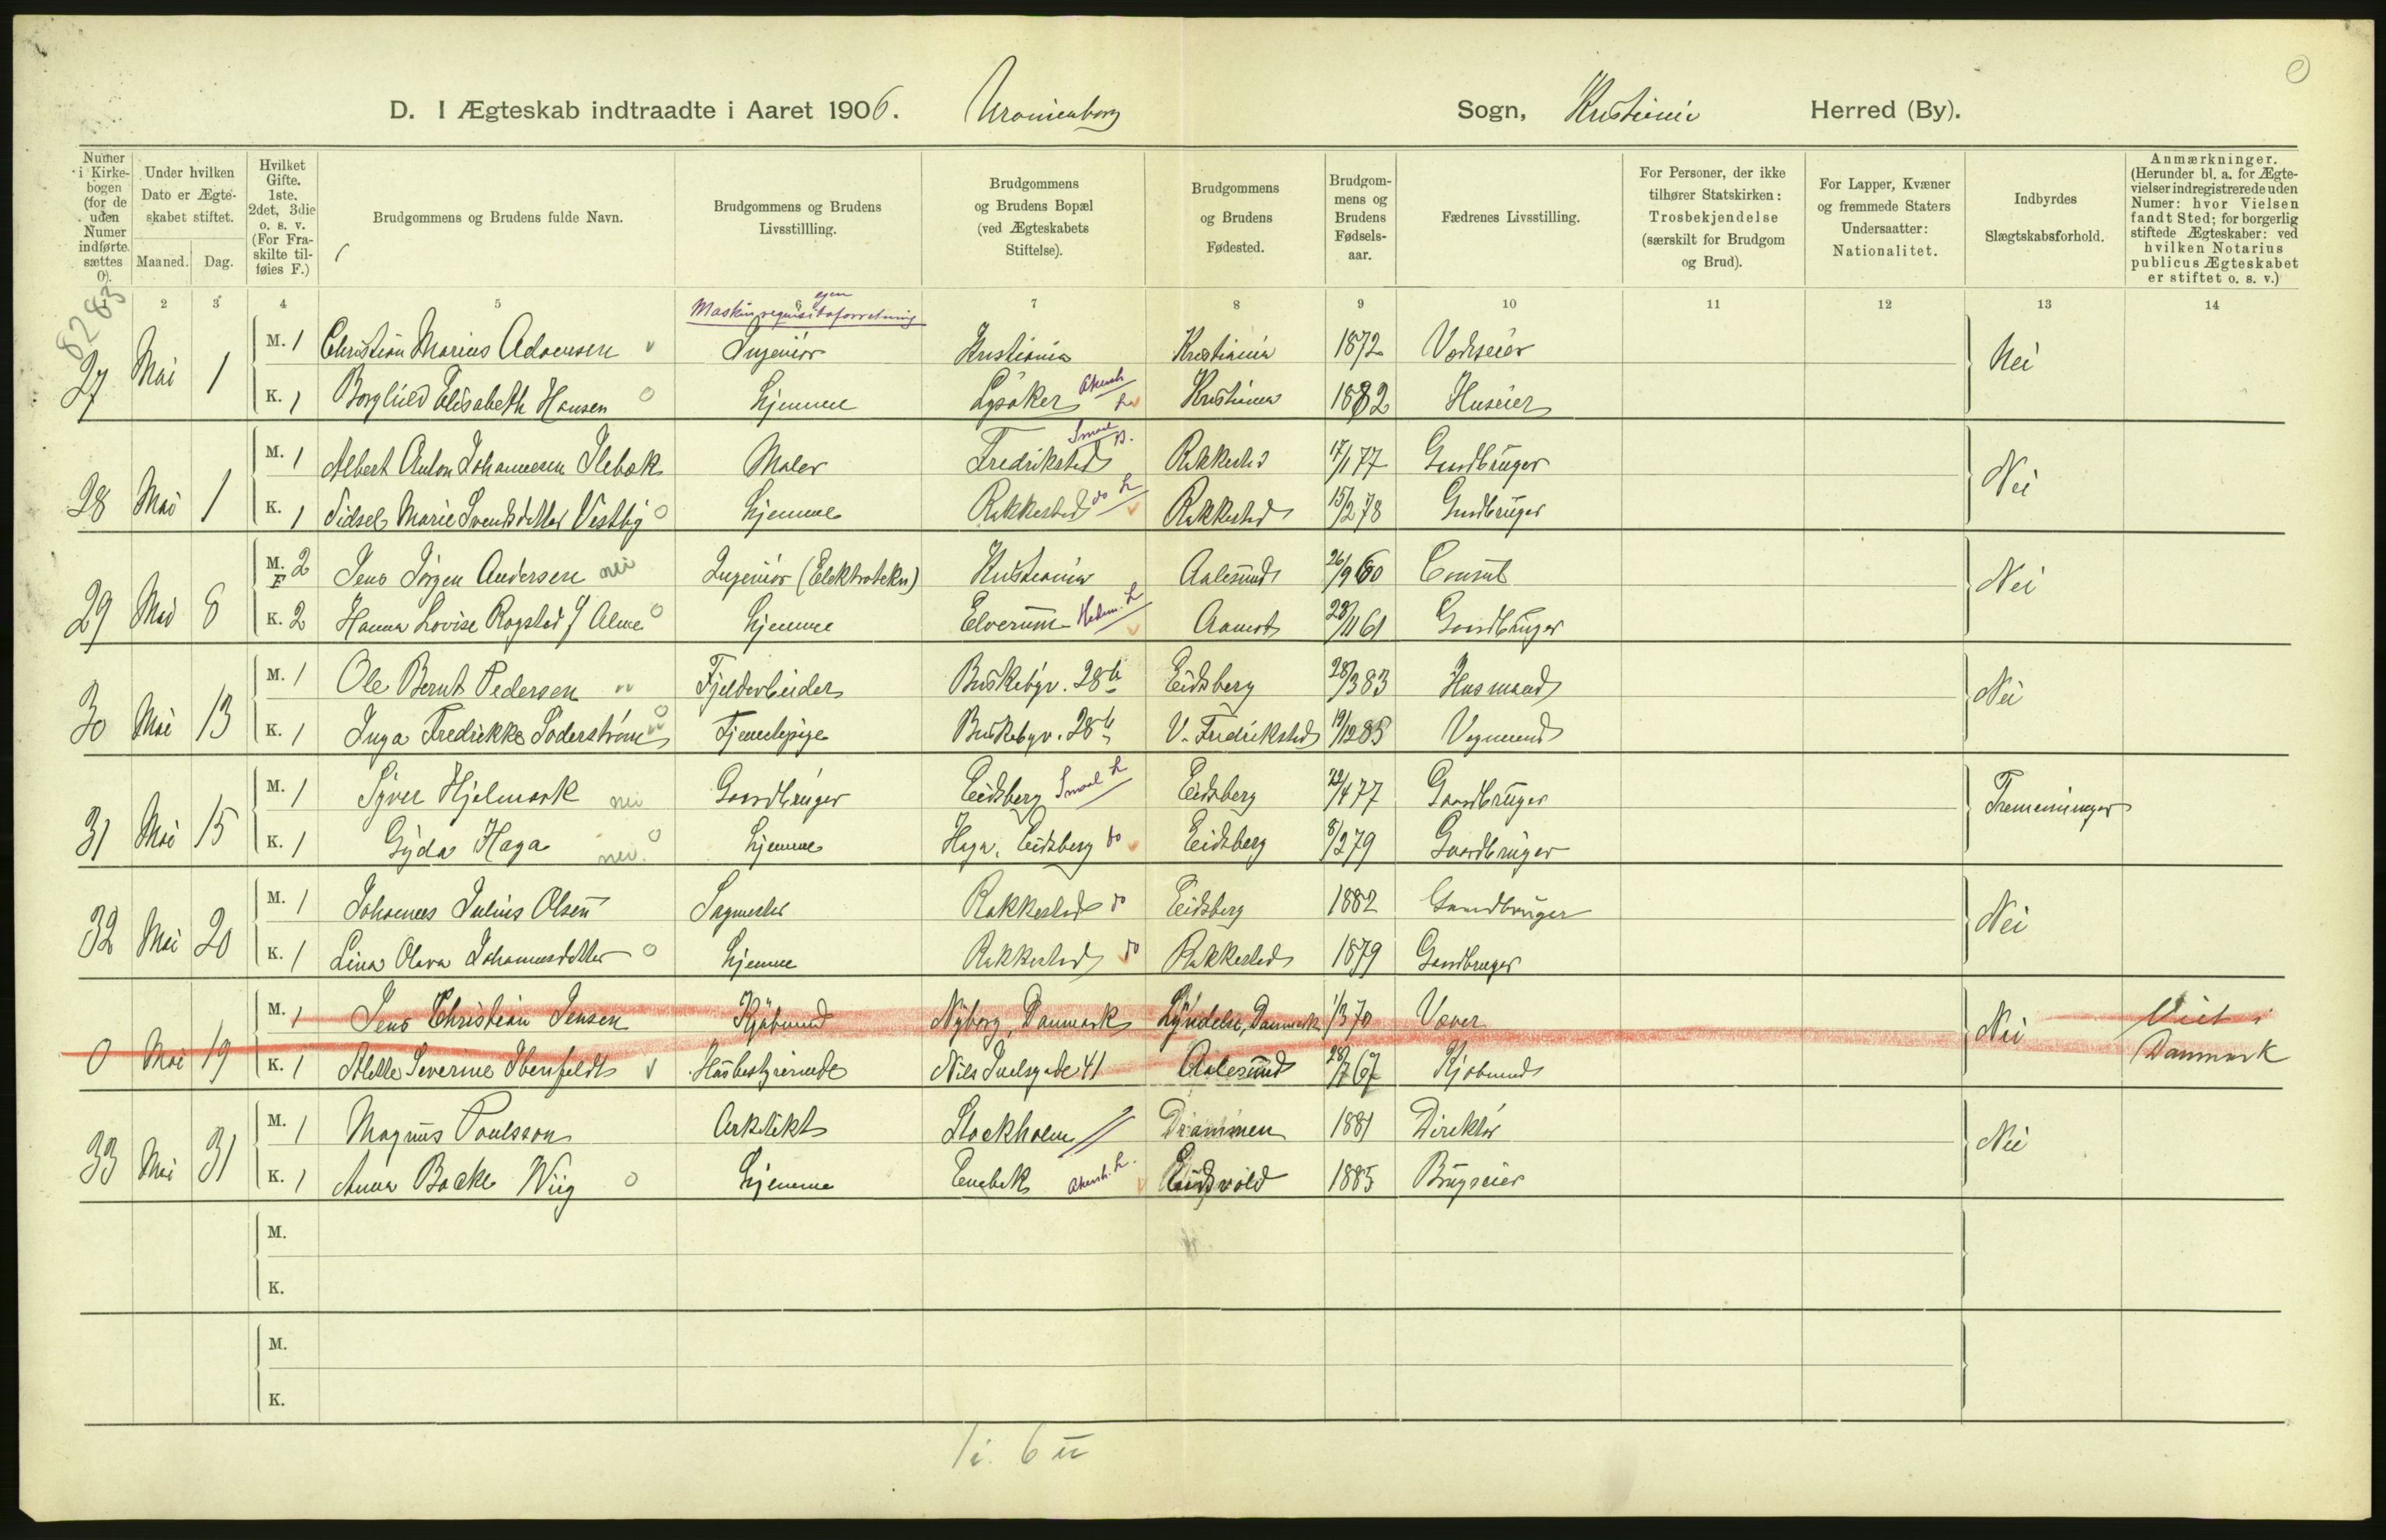 D. I Ægteskab indtraadte i Aaret 1906. Uranienborg Sogn, Kristiania Herred (By).
Numer i Kirke-bogen (for de uden Numer indførte sættes 0).
Under hvilken Dato er Ægte-skabet stiftet.
Maaned. Dag.
Hvilket Gifte. 1ste. 2det, 3die o. s. v. (For Fra-skilte til-føies F.)
Brudgommens og Brudens fulde Navn.
Brudgommens og Brudens Livsstillling.
Brudgommens og Brudens Bopæl (ved Ægteskabets Stiftelse).
Brudgommens og Brudens Fødested.
Brudgom-mens og Brudens Fødsels-aar.
Fædrenes Livsstilling.
For Personer, der ikke tilhører Statskirken: Trosbekjendelse (særskilt for Brudgom og Brud).
For Lapper, Kvæner og fremmede Staters Undersaatter: Nationalitet.
Indbyrdes Slægtskabsforhold.
Anmærkninger. (Herunder bl. a. for Ægte-vielser indregistrerede uden Numer: hvor Vielsen fandt Sted; for borgerlig stiftede Ægteskaber: ved hvilken Notarius publicus Ægteskabet er stiftet o. s. v.)
2 3 4 5 6 7 8 9 10 11 12 13 14
8283
egen
Maskinrequisitaforretning
M. 1 Christian Marius Adamsen v Ingeniør Kristiania Kristiania 1872 Værkseier
27 Mai 1 Nei
K. 1 Borghild Elisabeth Hansen o hjemme Lysaker Akersh. L Kristiania 1882 Huseier
M. 1 Albert Anton Johannesen Ilebæk Maler Fredrikstad Smaal B. Rakkestad 17/1 77 Gaardbruger
28 Mai 1 Nei
K. 1 Sidsel Marie Svendsdatter Vestby o hjemme Rakkestad do L Rakkestad 15/2 78 Gaardbruger
M. 2 F Jens Jørgen Andersen nei Ingeniør (Elektrotekn) Kristiania Aalesund 26/9 60 Consul
29 Mai 8 Nei
K. 2 Hanna Lovise Rogstad f Alme o hjemme Elverum Hedm. L Aamot 28/11 61 Gaardbruger
M. 1 Ole Bernt Pedersen Fjeldarbeider Briskebyv. 28b Eidsberg 28/3 83 Husmand
30 Mai 13 Nei
K. 1 Inga Fredrikke Söderström o Tjenestepige Briskebyv. 28b V. Fredrikstad 19/12 85 Vognmand
M. 1 Syver Hjelmark nei Gaardbruger Eidsberg Smaal L Eidsberg 22/4 77 Gaardbruger
31 Mai 15 Tremenninger
K. 1 Gyda Haga nei o hjemme Haga, Eidsberg do Eidsberg 8/2 79 Gaardbruger
M. 1 Johannes Julius Olsen Sagmester Rakkestad do Eidsberg 1882 Gaardbruger
32 Mai 20 Nei
K. 1 Lina Olava Johannesdatter o hjemme Rakkestad do Rakkestad 1879 Gaardbruger
M. 1 Jens Christian Jensen Kjøbmand Nyborg, Danmark Lyndelse, Danmark 1/3 70 Væver Viet i
0 Mai 19 Nei Danmark
K. 1 Alette Severine Ibenfeldt v Husbestyrerinde Niels Juelsgade 41 Aalesund 28/7 67 Kjøbmand
M. 1 Magnus Poulsson Arkitekt Stockholm Drammen 1881 Direktør
33 Mai 31 Nei
K. 1 Anna Backe Wiig o hjemme Enebak Akersh. L. Eidsvold 1885 Brugseier
M.
K.
M.
K.
1 i. 6 u